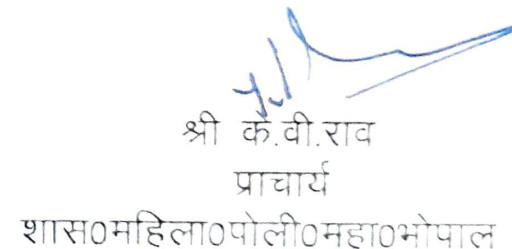 श्री के.वी.राव
प्राचार्य
शास0महिला0पोली0महा0भोपाल